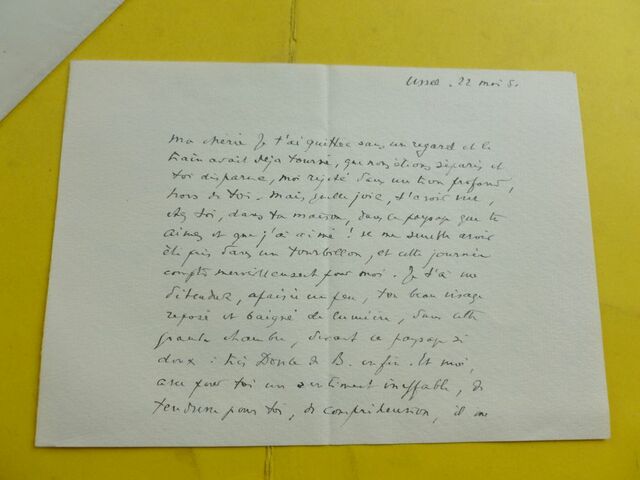 Ussel. 22 mai 5.
Ma chérie Je t'ai quittée sans un regard et le
train avait déjà tourné, que nous étions séparés et
toi disparue, moi rejeté dans un trou profond,
hors de toi. Mais quelle joie, t'avoir vue,
chez toi, dans ta maison, dans ce paysage que tu
aimes et que j'ai aimé! Il me semble avoir
été pris dans un tourbillon, et cette journée
compte merveilleusement pour moi. Je t'ai vue
détendue, apaisée un peu, ton beau visage
reposé et baigné de lumière, dans cette
grande chambre, devant ce paysage si
doux : très de B. enfin. Et moi,
avec pour toi un sentiment ineffable, de
tendresse pour toi, de compréhension, il me